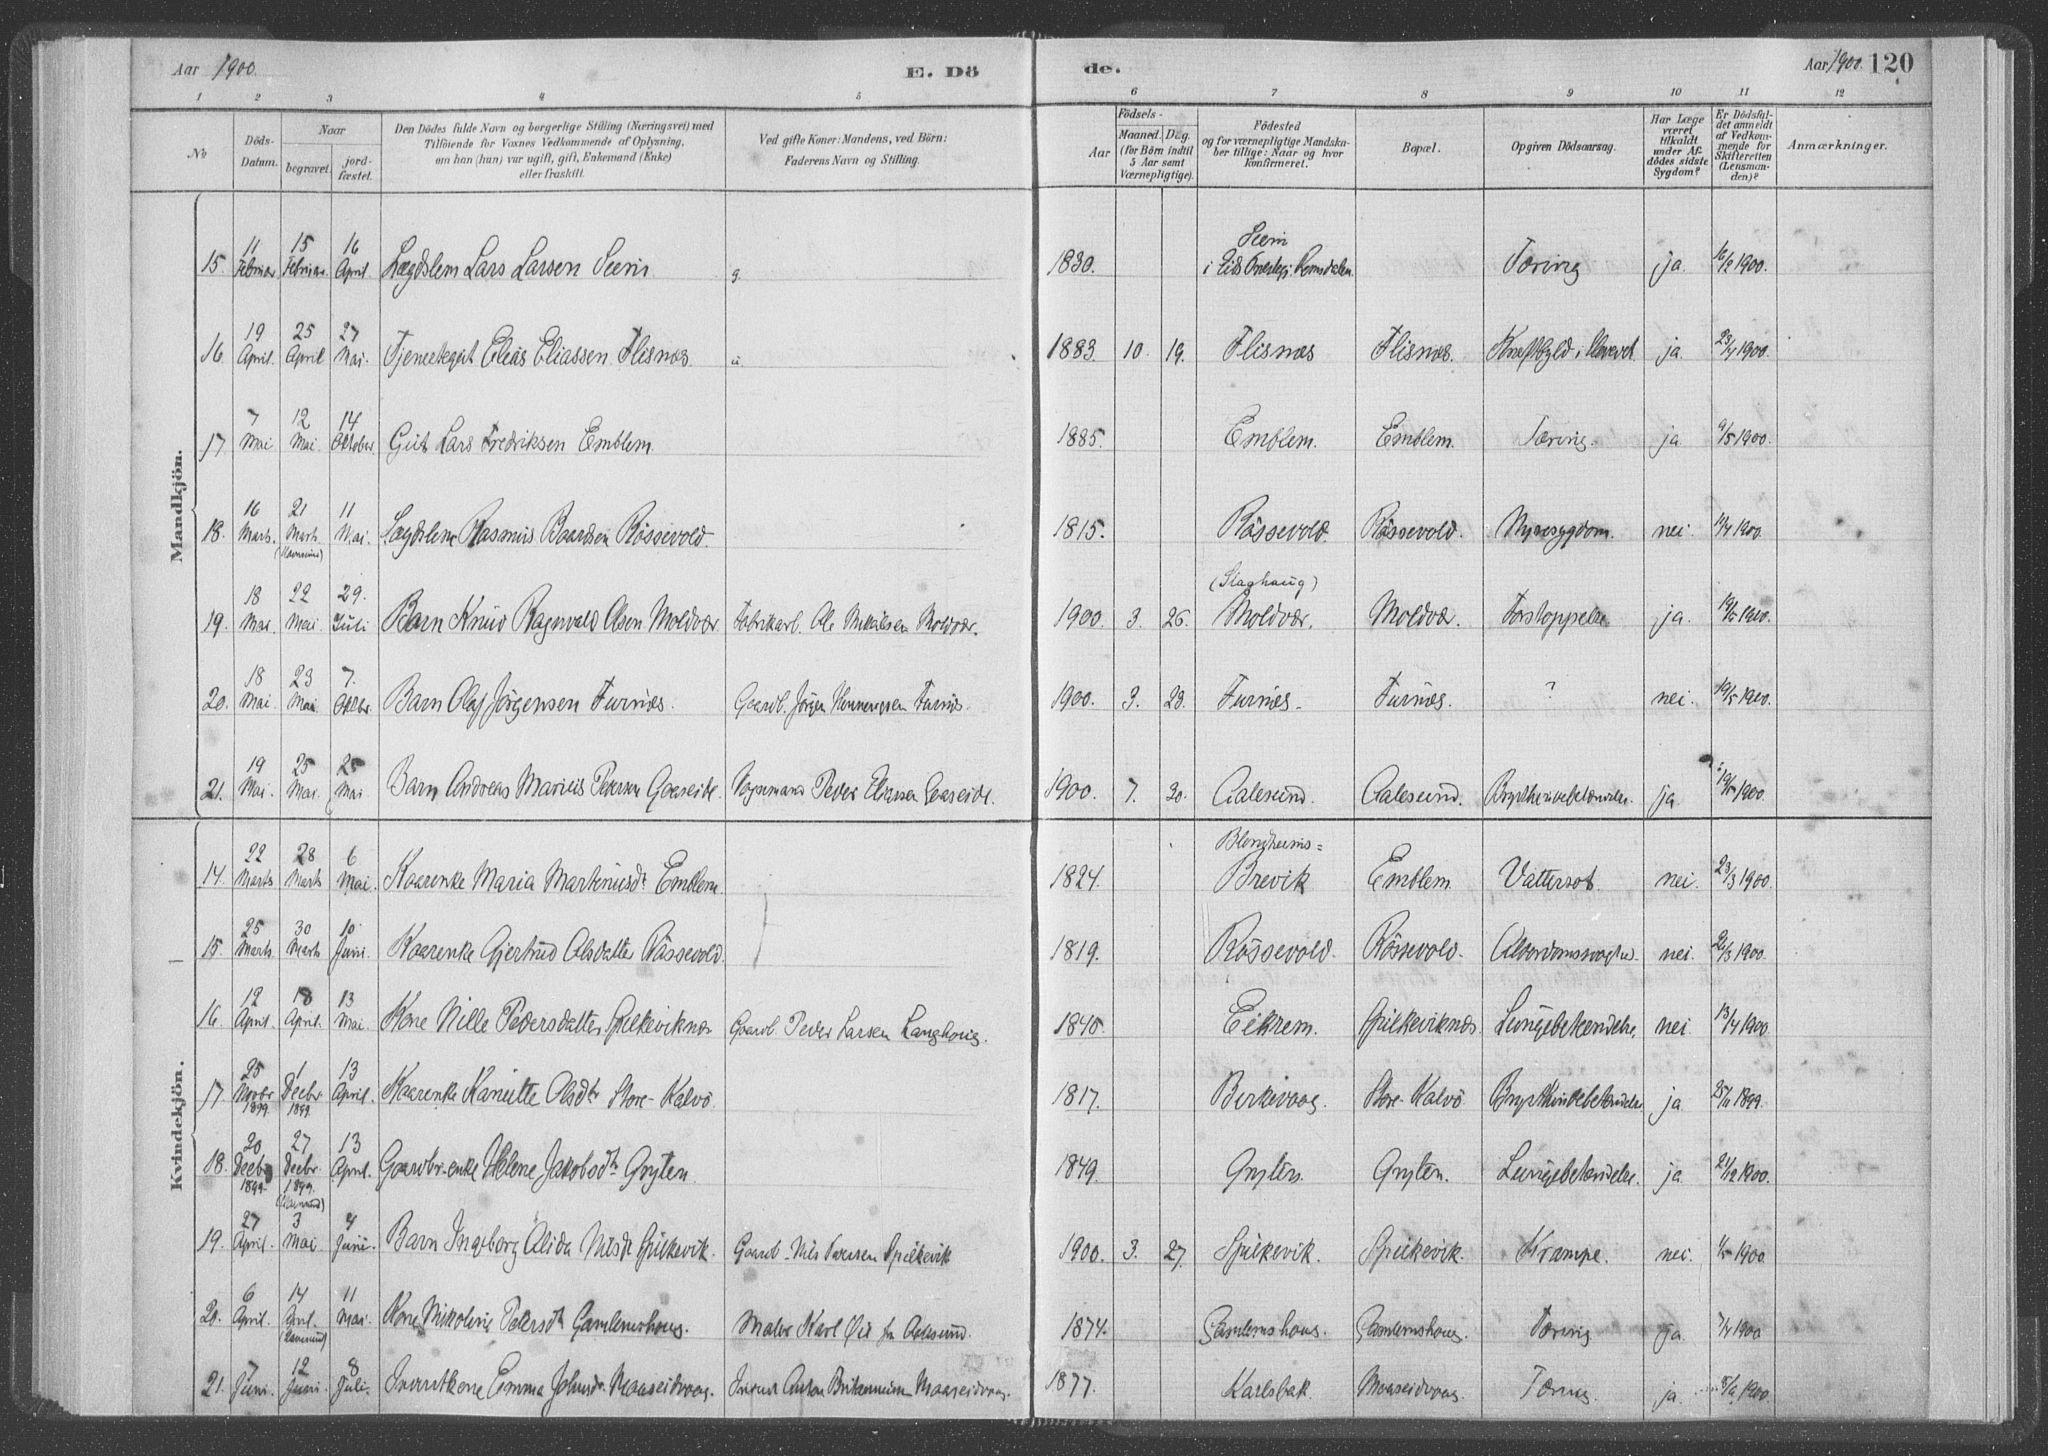 Aar 1900. E. Dö de. Aar 1900. 120
1 2 3 4 5 6 7 8 9 10 11 12
No
Döds-Datum.
Naar
begravet.
jord-fæstet.
Den Dödes fulde Navn og borgerlige Stilling (Næringsvei) med
Tilföiende for Voxnes Vedkommende af Oplysning,
om han (hun) var ugift, gift, Enkemand (Enke)
eller fraskilt.
Ved gifte Koner: Mandens, ved Börn:
Faderens Navn og Stilling.
Aar
Födsels-
Maaned. Dag.
(for Börn indtil
5 Aar samt
Værnepligtige).
Födested
og for værnepligtige Mandska-
ber tillige: Naar og hvor
konfirmeret.
Bopæl.
Opgiven Dödsaarsag.
Har Læge
været
tilkaldt
under Af-
dödes sidste
Sygdom?
Er Dödsfal-
det anmeldt
af Vedkom-
mende for
Skifteretten
(Lensman-
den)?
Anmærkninger.
Mandkjön.
15. 11 Februar 15 Februar 16 April Lægdslem Lars Larsen Seem g 1830. Seem i Eids Romsdalen Tæring ja. 16/2 1900.
16. 19 April. 25 April 27 Mai. Tjenestegut Elias Eliassen Flisnæs. u. 1883. 10. 19. Flisnæs Flisnæs. ja. 23/4 1900.
17. 7 Mai 12 Mai. 14 Oktober. Gut Lars Fredriksen Emblem. 1885. Emblem. Emblem. Tæring. ja. 9/5 1900.
18. 16 Marts. 21 Marts. 11 Mai. Lægdslem Rasmus Baardsen Røssevold. 1815. Røssevold Røssevold. Nyresygdom. nei. 1900.
19. 18 Mai. 22 Mai 29. Juli Barn Knud Ragnvald Olsen Moldvær Fabrikarb. Ole Mikalsen Moldvær. 1900. 3. 26. (Slaghaug) Moldvær. Moldvær. Forstoppelse ja. 19/5 1900.
20. 18 Mai. 23 Mai 7. Oktbr. Barn Olaf Jörgensen Furnæs. Gaardb. Jörgen Furnæs. 1900. 3. 23. Furnæs. Furnæs. ? nei. 19/5 1900.
21. 19 Mai. 25 Mai. 25 Mai Barn Andreas Marius Petersen Gaaseide. Peder Eliassen Gaaseide. 1900. 7. 20. Aalesund. Aalesund. Brysthindebetændelse. ja 19/5 1900.
Kvindekjön.
14. 22 Marts 28 Marts 6 Mai. Kaarenke Maria Martinusdr Emblem. 1824. Blengheims= Brevik Emblem. Vattersot. nei. 23/3 1900.
15. 25 Marts. 30 Marts 10 Juni. Kaarenke Gjertrud Olsdatter Røssevold. 1819. Røssevold. Røssevold. Alderdomssvaghed. nei. 26/3 1900.
16 12 April. 18 April. 13 Mai. Kone Nille Pedersdatter Spilkeviknæs Gaardb. Peder Larsen Langhoug. 1840. Eikrem. Spilkeviknæs. Lungebetændelse. nei. 13/4 1900.
17. 25 Novbr 1899 1 Decbr 1899. 13 April. Kaarenke Kanutte Olsdtr Store-Kalvö. 1817. Birkevaag. Store-Kalvö. Brysthindebetændelse ja. 25/11 1899.
18. 20 Decbr 1899. 27 Decbr. 1899. 13 April. Gaardbr.enke Helene Jakobsdtr Gryten. 1849. Gryten. Gryten. Lungebetændelse. ja. 21/12 1900.
19. 27 April. 3 Mai 4 Juni. Barn Ingeborg Alida Nilsdtr Spilkevik. Gaardb. Nils Iversen Spilkevik 1900. 3. 27. Spilkevik. Spilkevik. Krampe. nei. 1/5 1900.
20. 6 April. 14 April. 11 Mai. Kone Nikoline Petersdtr Gamlemshoug. Maler Karl Øie fra Aalesund. 1874. Gamlemshoug. Gamlemshoug. Tæring ja. 7/4 1900
21. 7 Juni. 12 Juni. 8 Juli. Inderstkone Emma Johnsdr Maaseidvaag. Inderst Anton Maaseidvaag. 1877. Karlsbak. Maaseidvaag. Tæring ja. 8/6 1900.